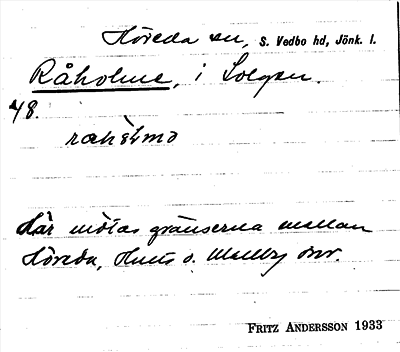 Höreda sn, S. Vedbo hd, Jönk. l.
Råholme, i Solgen.
48.
Här mötas gränserna mellan
Höreda, Hults o. Mellby snr.
FRITZ ANDERSSON 1933